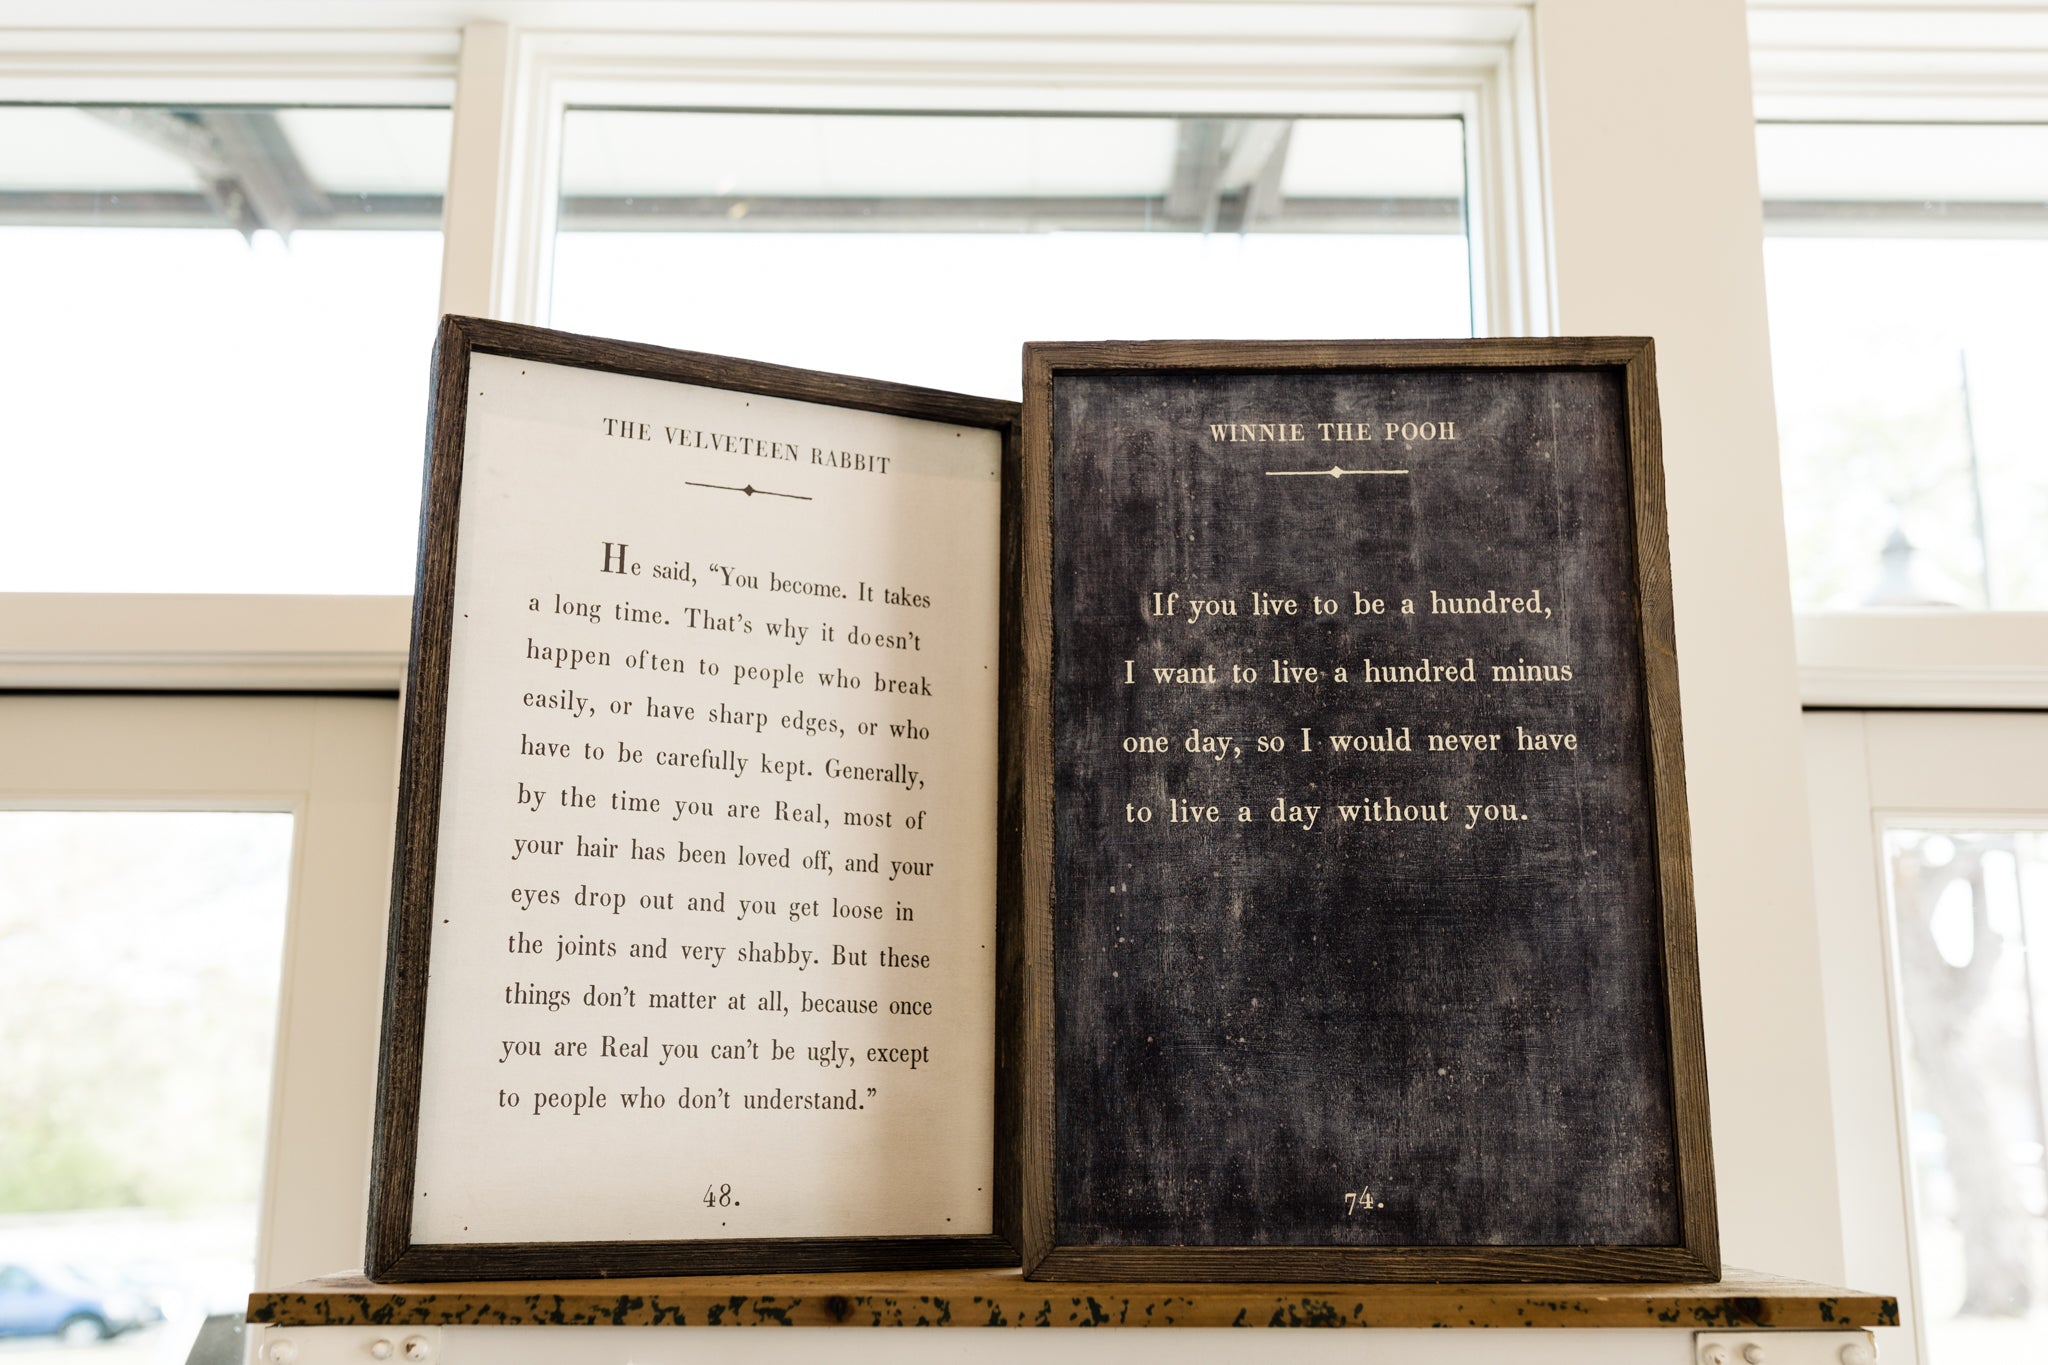 THE VELVETEEN RABBIT
He said, “You become. It takes
a long time. That’s why it doesn’t
happen often to people who break
easily, or have sharp edges, or who
have to be carefully kept. Generally,
by the time you are Real, most of
your hair has been loved off, and your
eyes drop out and you get loose in
the joints and very shabby. But these
things don’t matter at all, because once
you are Real you can’t be ugly, except
to people who don’t understand.”
48.
WINNIE THE POOH
If you live to be a hundred,
I want to live a hundred minus
one day, so I would never have
to live a day without you.
74.